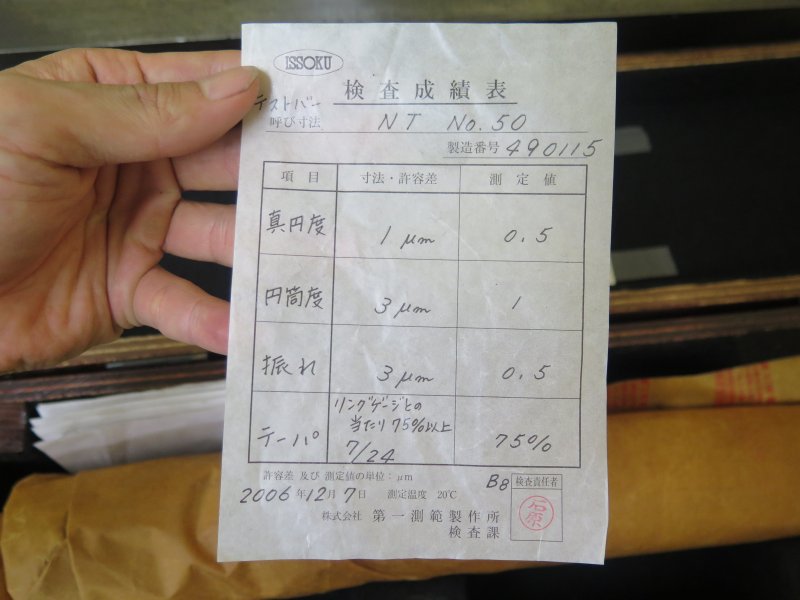 ISSOKU
検査成績表
テストバー
呼び寸法 NT No.50
製造番号 490115
項目 寸法・許容差 測定値
真円度 1μm 0.5
円筒度 3μm 1
振れ 3μm 0.5
テーパ リングゲージとの当たり75%以上 7/24 75%
許容差及び測定値の単位:μm
2006年12月7日 測定温度 20℃
B8 検査責任者
石原
株式会社 第一測範製作所
検査課